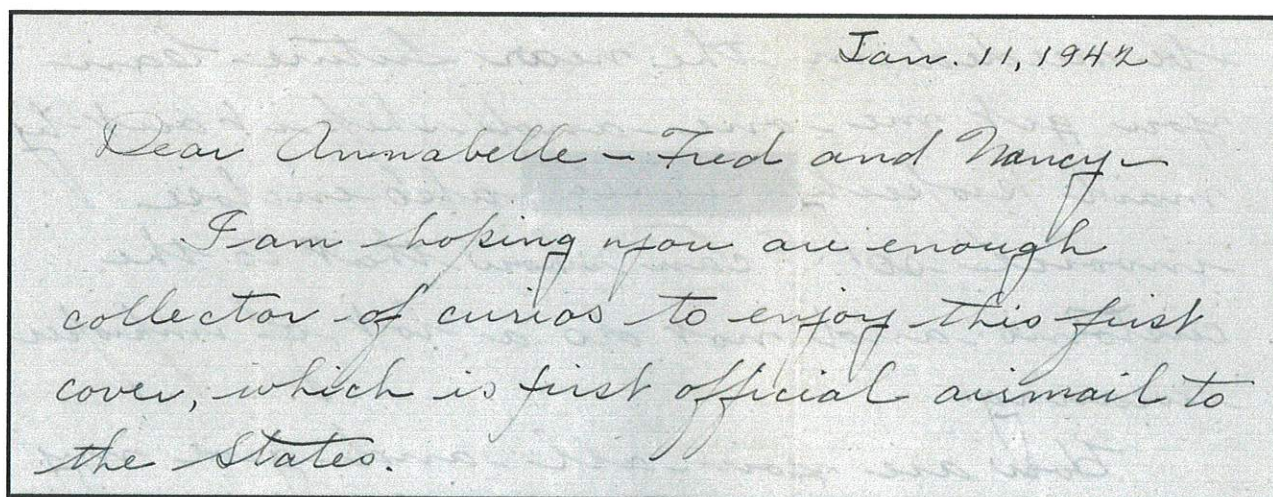 Jan. 11, 1942
Dear Annabelle - Fred and Nancy -
I am hoping you are enough
collector of curios to enjoy this first
cover, which is first official airmail to
the States.